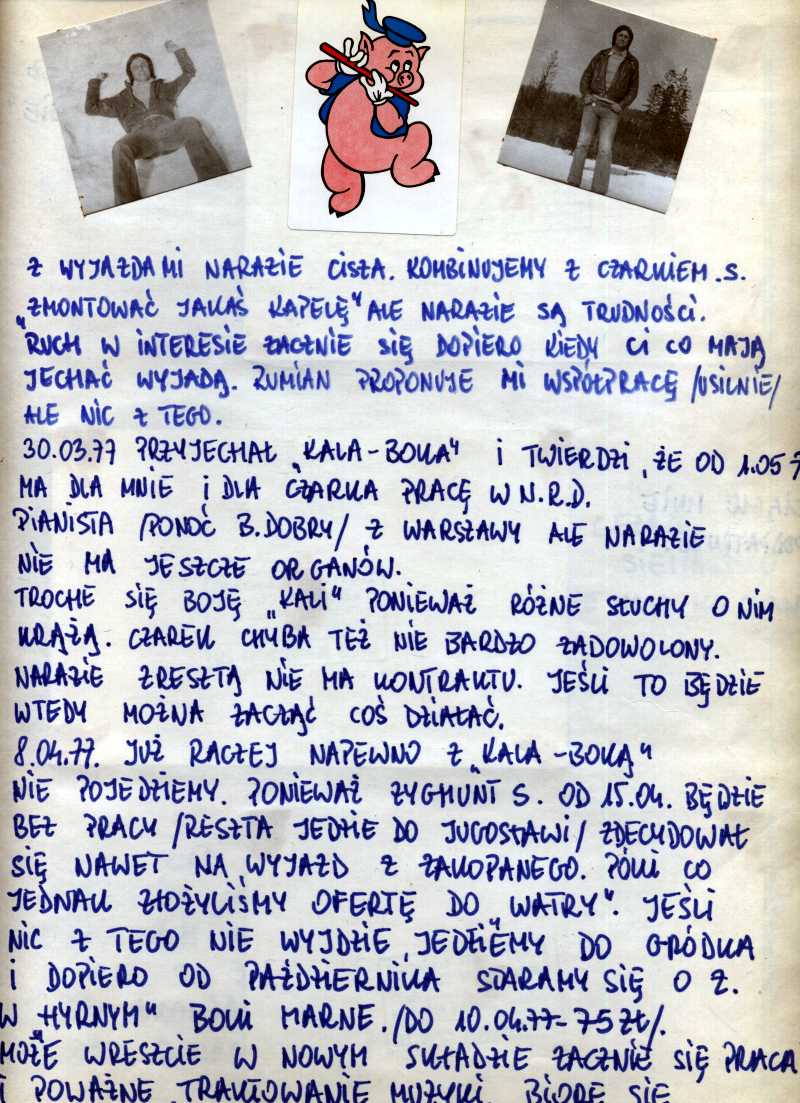 Z WYJAZDAMI NARAZIE CISZA. KOMBINUJEMY Z CZARKIEM .S.
ZMONTOWAĆ „JAKĄŚ KAPELĘ" ALE NARAZIE SĄ TRUDNOŚCI.
RUCH W INTERESIE ZACZNIE SIĘ DOPIERO KIEDY CI CO MAJĄ
JECHAĆ WYJADĄ. RUMIAN PROPONUJE MI WSPÓŁPRACĘ /USILNIE/
ALE NIC Z TEGO.
30.03.77 PRZYJECHAŁ „KALA-BOKA" I TWIERDZI, ŻE OD 1.05
MA DLA MNIE I DLA CZARKA PRACĘ W N.R.D.
PIANISTA /PONOĆ B.DOBRY/ Z WARSZAWY ALE NARAZIE
NIE MA JESZCZE ORGANÓW.
TROCHE SIĘ BOJĘ „KALI" PONIEWAŻ RÓŻNE SŁUCHY O NIM
KRĄŻĄ. CZAREK CHYBA TEŻ NIE BARDZO ZADOWOLONY.
NARAZIE ZRESZTĄ NIE MA KONTRAKTU. JEŚLI TO BĘDZIE
WTEDY MOŻNA ZACZĄĆ COŚ DZIAŁAĆ.
8.04.77. JUŻ RACZEJ NAPEWNO Z „KALA-BOKĄ"
NIE POJEDZIEMY. PONIEWAŻ ZYGMUNT S. OD 15.04. BĘDZIE
BEZ PRACY /RESZTA JEDZIE DO JUGOSŁAWI/ ZDECYDOWAŁ
SIĘ NAWET NA WYJAZD Z ZAKOPANEGO. PÓKI CO
JEDNAK ZŁOŻYLIŚMY OFERTĘ DO „WATRY". JEŚLI
NIC Z TEGO NIE WYJDZIE, JEDZIEMY DO GRÓDKA
I DOPIERO OD PAŹDZIERNIKA STARAMY SIĘ O Z.
W „HYRNYM" BOKI MARNE. /DO 10.04.77-75 ZŁ/.
MOŻE WRESZCIE W NOWYM SKŁADZIE ZACZNIE SIĘ PRACA
I POWAŻNE TRAKTOWANIE MUZYKI. BIORĘ SIĘ